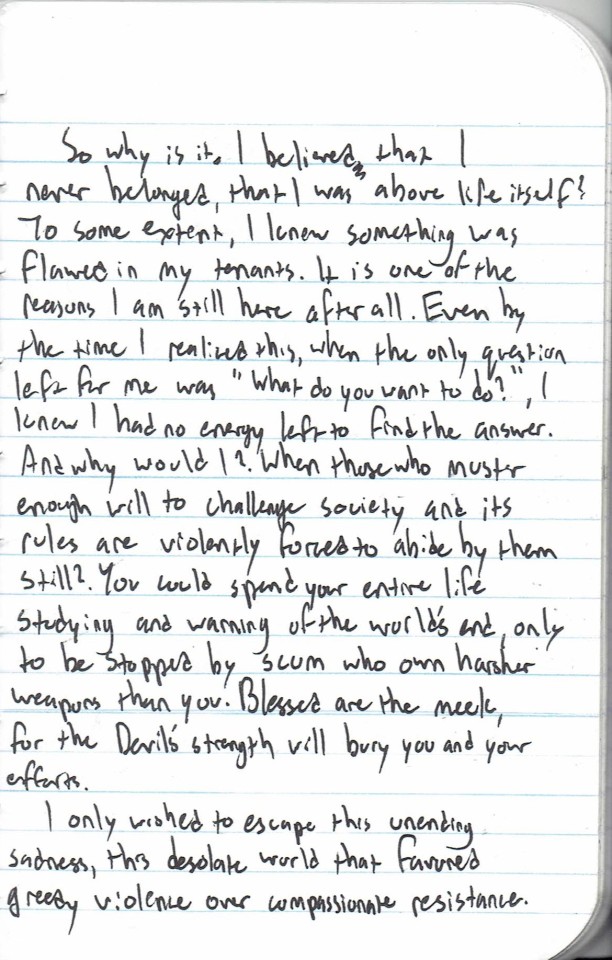 So why is it, I believed, that I
never belonged, that I was above life itself?
To some extent, I knew something was
flawed in my tenants. It is one of the
reasons I am still here after all. Even by
the time I realized this, when the only question
left for me was "What do you want to do?", I
knew I had no energy left to find the answer.
And why would I? When those who muster
enough will to challenge society and its
rules are violently forced to abide by them
still? You could spend your entire life
studying and warning of the world's end, only
to be stopped by scum who own harsher
weapons than you. Blessed are the meek,
for the Devil's strength will bury you and your
efforts.
I only wished to escape this unending
sadness, this desolate world that favored
greedy violence over compassionate resistance.